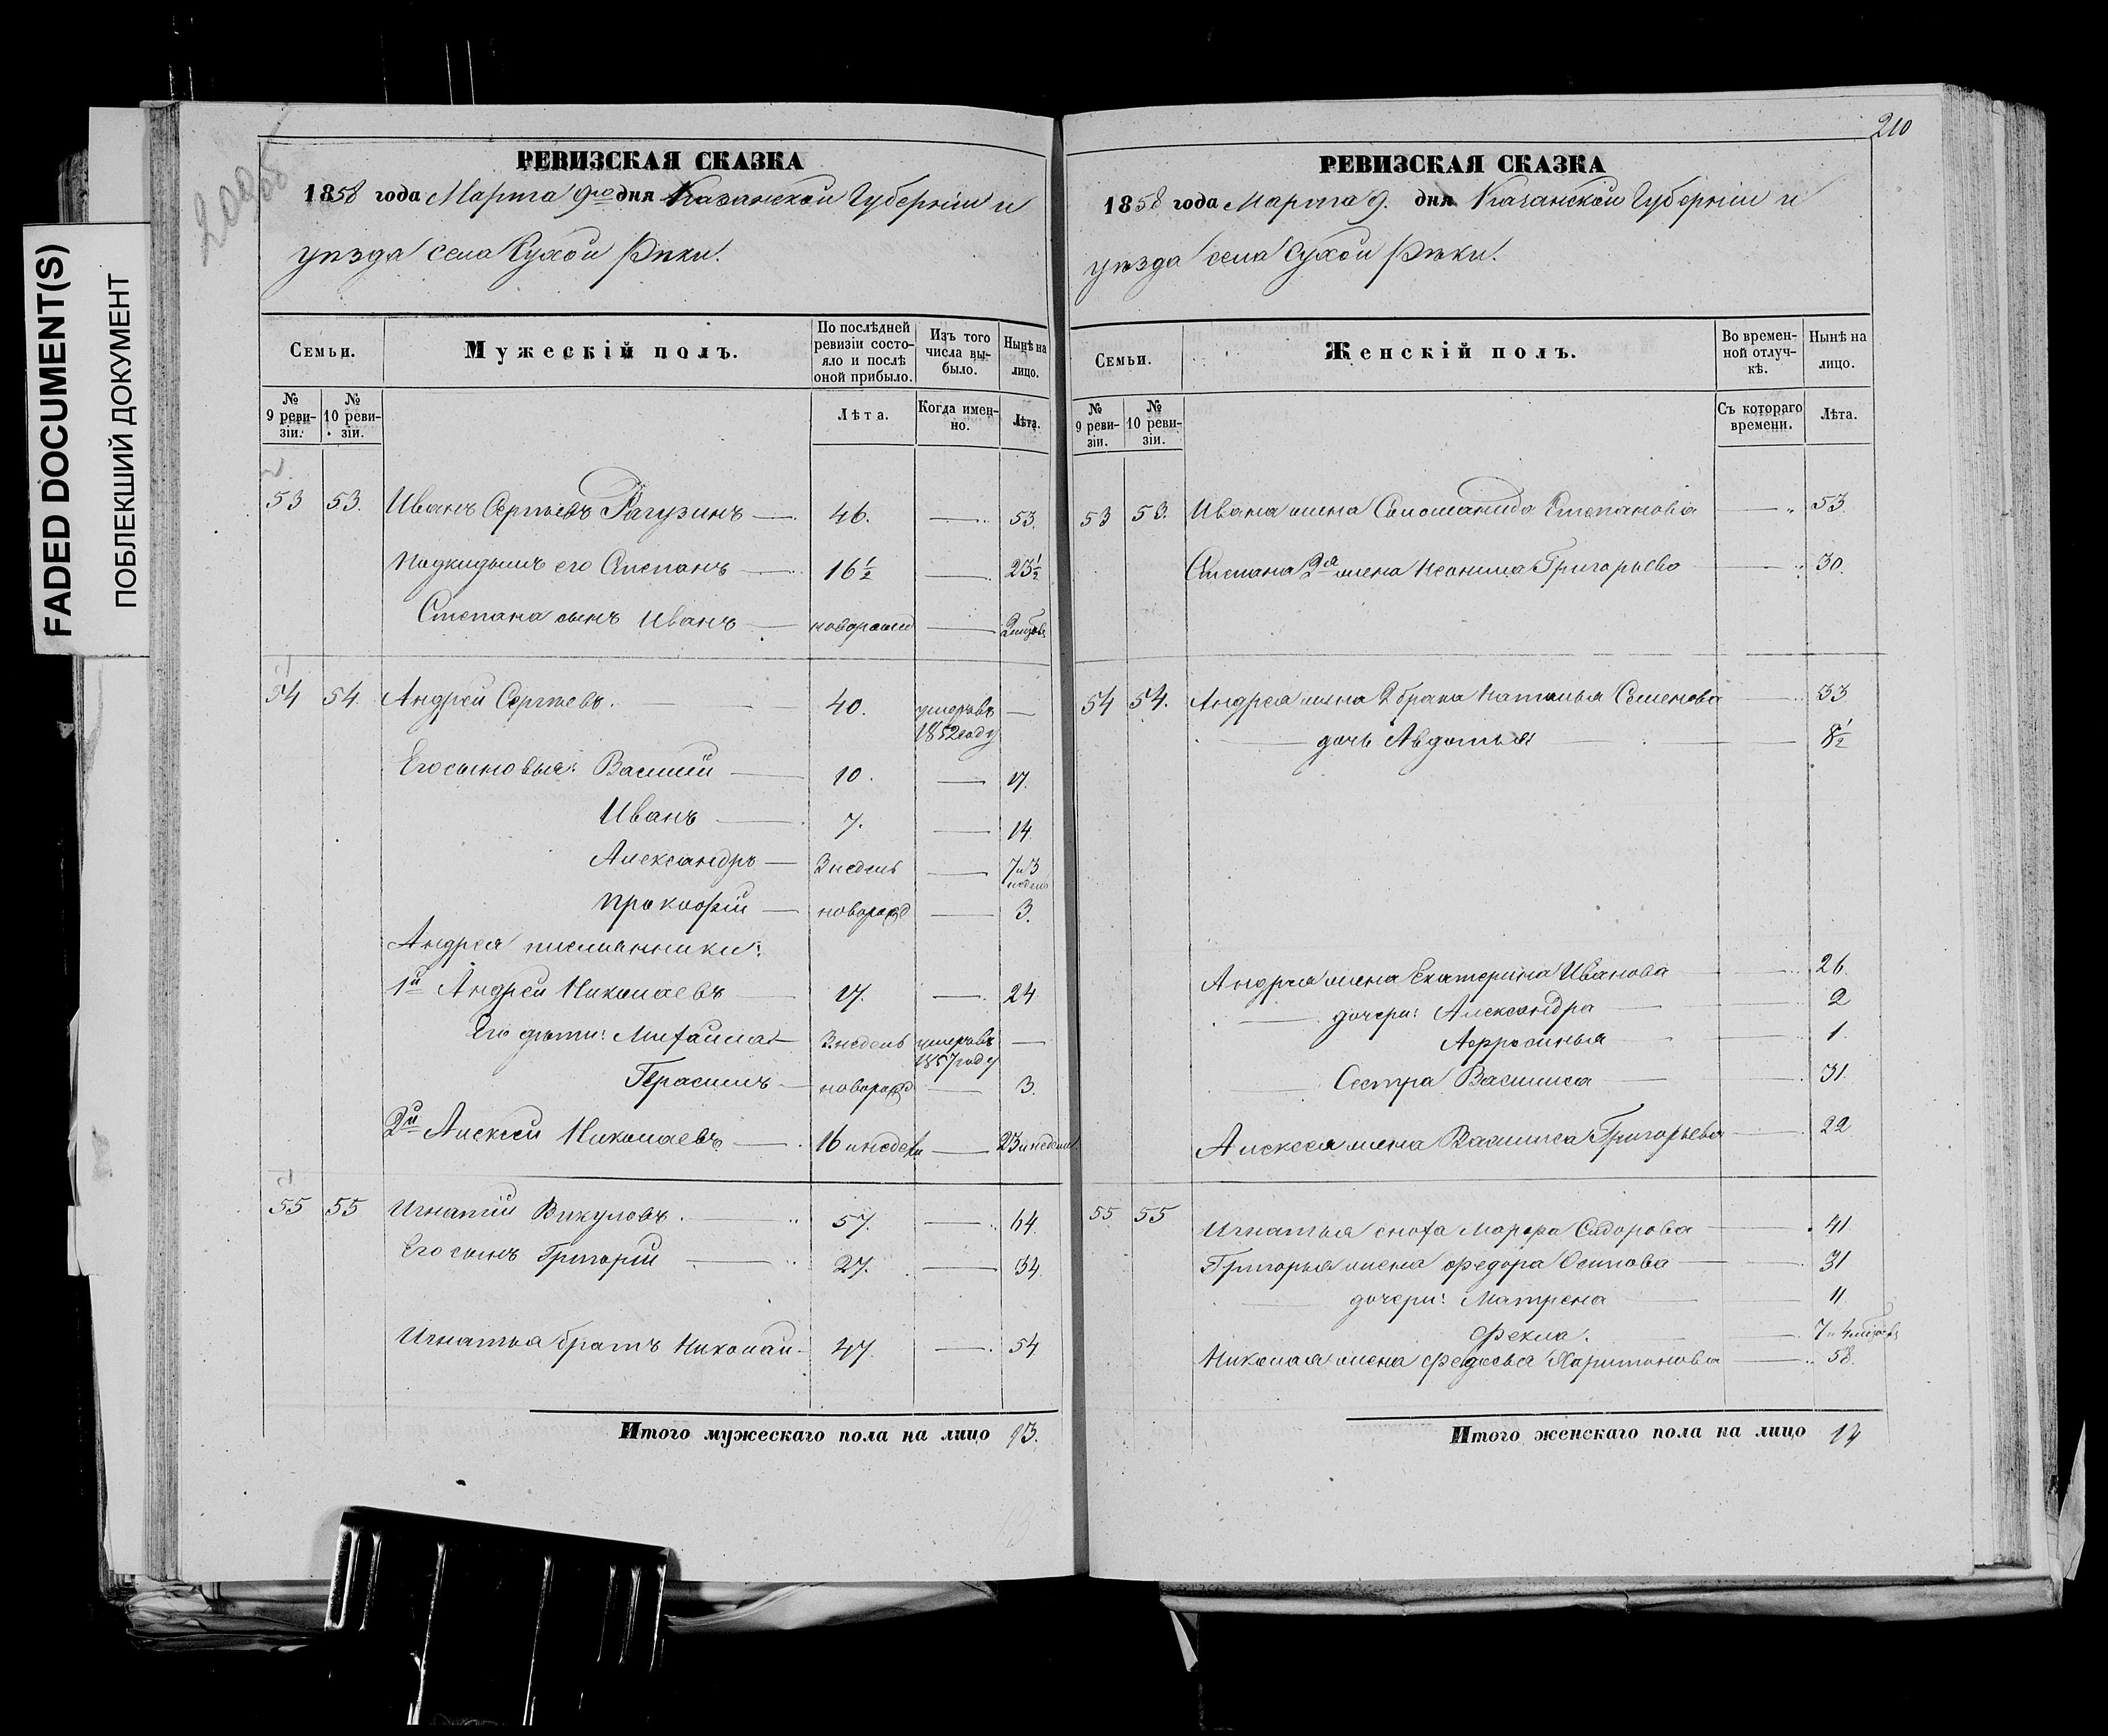 FADED DOCUMENT(S)
ПОБЛЕКШИЙ ДОКУМЕНТ
РЕВИЗСКАЯ СКАЗКА
1858 года Марта 9го дня Казанской Губернiи и
уѣзда села Сухой Рѣки.
Семьи.
Мужескiй полъ.
По послѣдней ревизiи состояло и послѣ оной прибыло.
Изъ того числа выбыло.
Нынѣ на лицо.
№ 9 ревизiи.
№ 10 ревизiи.
Лѣта.
Когда именно.
Лѣта.
53 53. Иванъ Сергѣевъ Рагузинъ 46. 53.
Подкидышъ его Степанъ 16½ 23½
Степана сынъ Иванъ новорожд 2 мѣсяц
54 54. Андрей Сергѣевъ. 40. умеръ въ 1852 году
Его сыновья: Василiй 10. 17.
Иванъ 7. 14.
Александръ 3 недель 7 и 3 недель
Прокофiй новорожд 3.
Андрея племянники:
1й Андрей Николаевъ 17. 24
Его дѣти: Михаила 3 недель умеръ въ 1857 году
Герасимъ новорожд 3.
2й Алексей Николаевъ 16 и недели 23 и недели
55 55 Игнатiй Викуловъ. 57. 64.
Его сынъ Григорiй 27. 34.
Игнатья братъ Николай 47. 54
Итого мужескаго пола на лицо 13.
210
РЕВИЗСКАЯ СКАЗКА
1858 года Марта 9. дня Казанской Губернiи и
уѣзда села Сухой Рѣки.
Семьи.
Женскiй полъ.
Во временной отлучкѣ.
Нынѣ на лицо.
№ 9 ревизiи.
№ 10 ревизiи.
Съ котораго времени.
Лѣта.
53 53. Ивана жена Соломанида Степанова 53.
Степана 2я жена Неонила Григорьева 30.
54 54. Андрея жена 2 брака Наталья Семенова 33
дочь Авдотья 8½
Андрея жена Екатерина Иванова 26.
дочери: Александра 2
Афросинья 1.
Сестра Василиса 31.
Алексея жена Василиса Григорьева 22
55 55 Игнатья сноха Марфа Сидорова 41
Григорья жена Федора Осипова 31
дочери: Матрена 11
Фекла. 7 и 4 мѣсяц
Николая жена Федосья Харитонова 58.
Итого женскаго пола на лицо 14